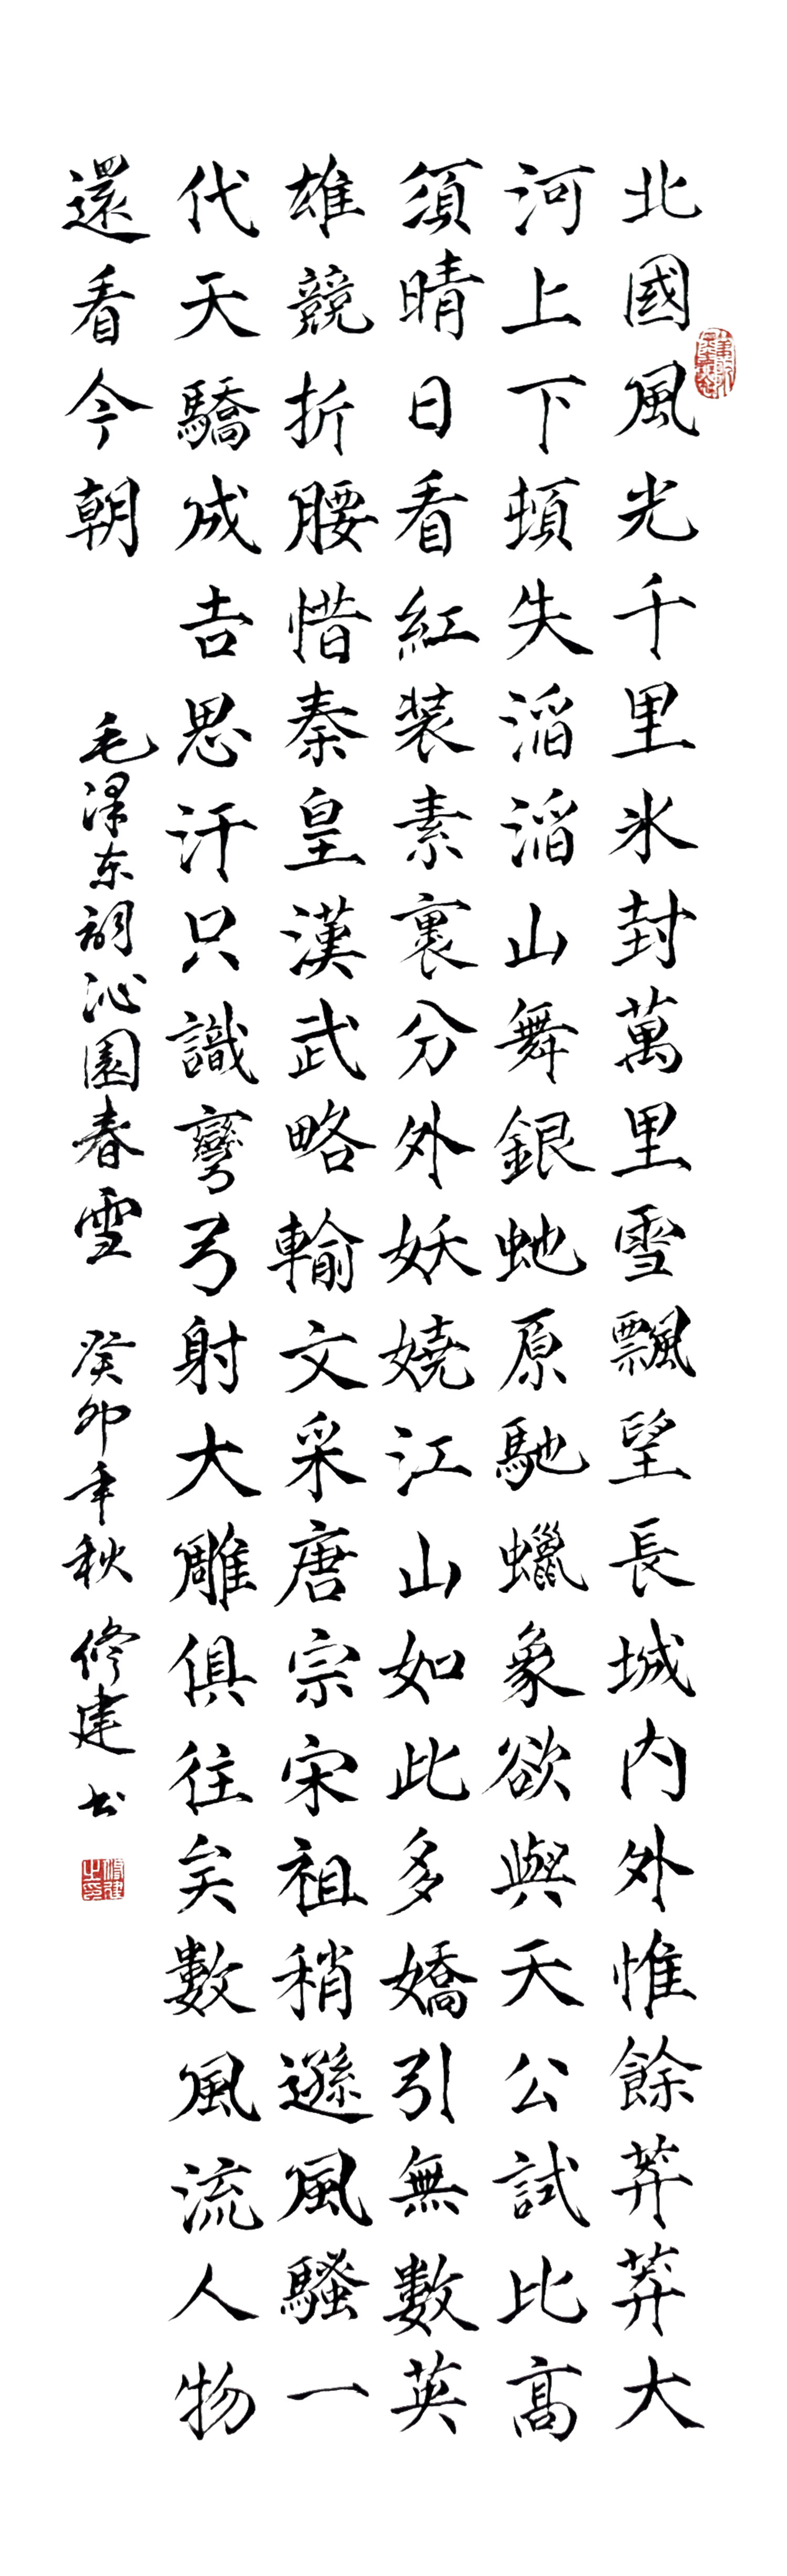 北國風光千里氷封萬里雪飄望長城内外惟餘莽莽大
河上下頓失滔滔山舞銀虵原馳蠟象欲與天公試比髙
須晴日看紅装素裹分外妖嬈江山如此多嬌引無數英
雄競折腰惜秦皇漢武略輸文采唐宗宋祖稍遜風騷一
代天驕成吉思汗只識彎弓射大雕俱往矣數風流人物
還看今朝
毛澤东詞沁園春雪 癸卯年秋 修建书
修建之印